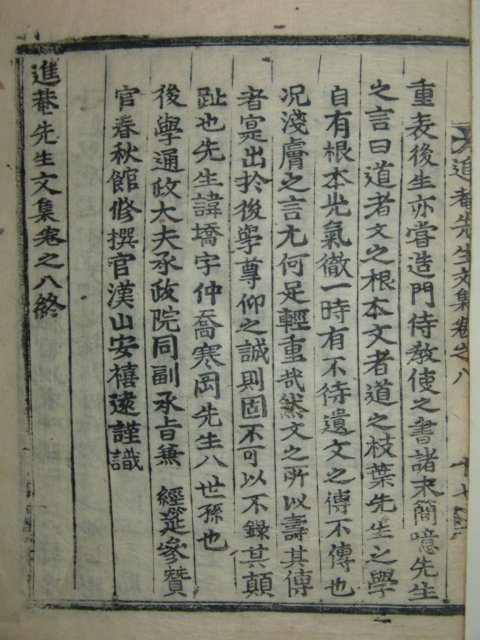 進菴先生文集卷之八
重表後生亦嘗造門侍敎使之書諸末簡噫先生
之言曰道者文之根本文者道之枝葉先生之學
自有根本光氣徹一時有不待遺文之傳不傳也
况淺膚之言尤何足輕重哉然文之所以壽其傳
者寔出於後學尊仰之誠則固不可以不錄其顚
趾也先生諱墧字仲喬寒岡先生八世孫也
後學通政大夫承政院同副承旨兼 經筵參贊
官春秋館修撰官漢山安禧遠謹識
進菴先生文集卷之八終